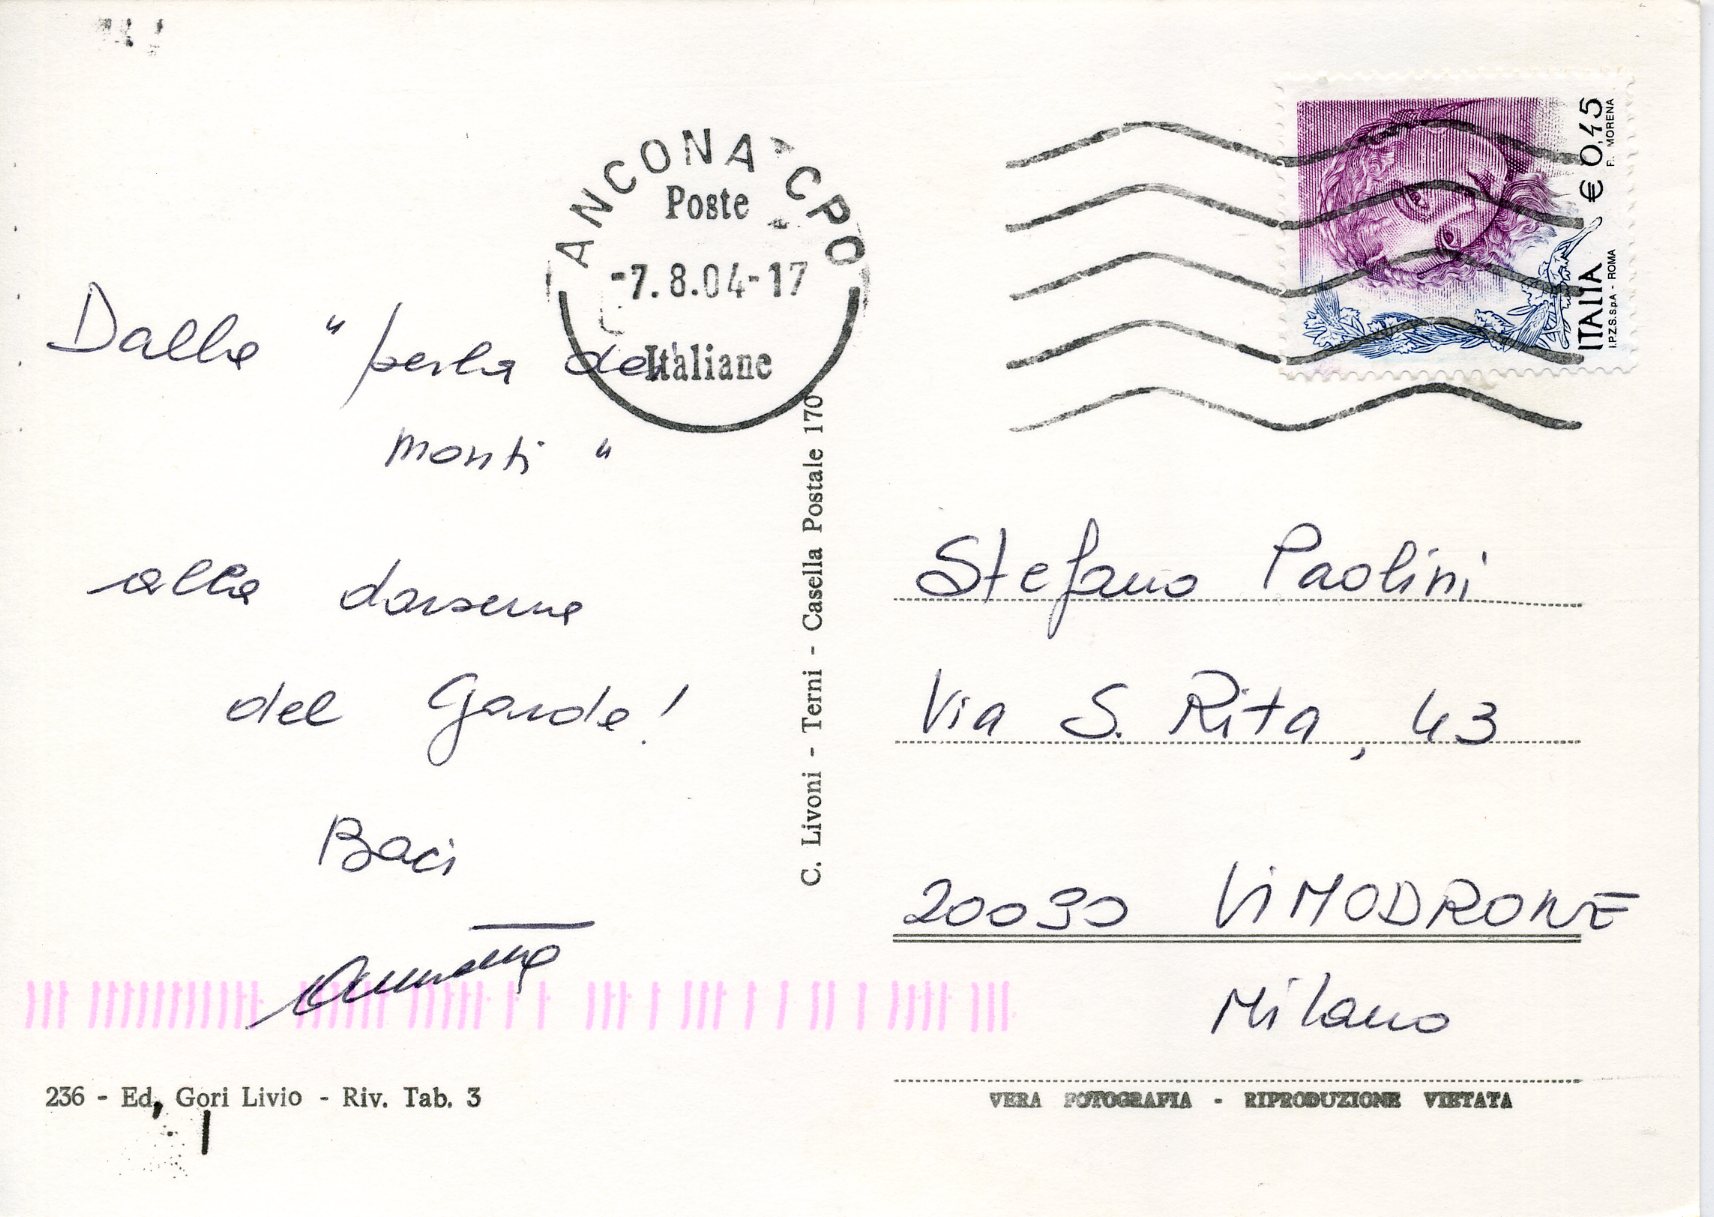 Dalla "perla dei
monti"
alla darsena
del Garda!
Baci
236 - Ed. Gori Livio - Riv. Tab. 3
ANCONA CPO
Poste
-7.8.04-17
Italiane
C. Livoni - Terni - Casella Postale 170
ITALIA € 0,45
I.P.Z.S. S.p.A. - ROMA F. MORENA
Stefano Paolini
Via S. Rita, 43
20090 VIMODRONE
Milano
VERA FOTOGRAFIA - RIPRODUZIONE VIETATA